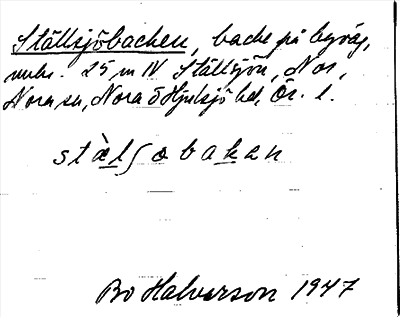 Ställsjöbacken, backe på byväg,
25 m N Ställsjön, Nor,
Nora sn, Nora o Hjulsjö hd, Ör. l.
stàlʃobakan
Bo Halvarson 1947